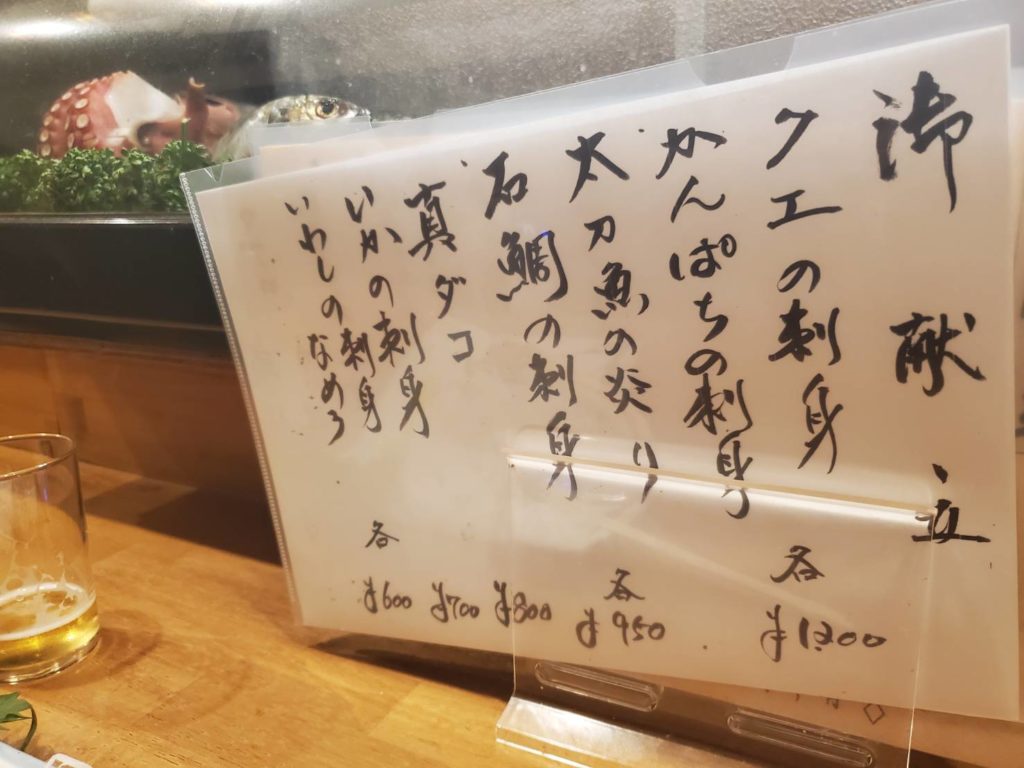 御献立
クエの刺身
かんぱちの刺身
各 ¥1,200
太刀魚の炙り
石鯛の刺身
各 ¥950
真ダコ
¥800
いかの刺身
¥700
いわしの刺身
なめろう
各 ¥600